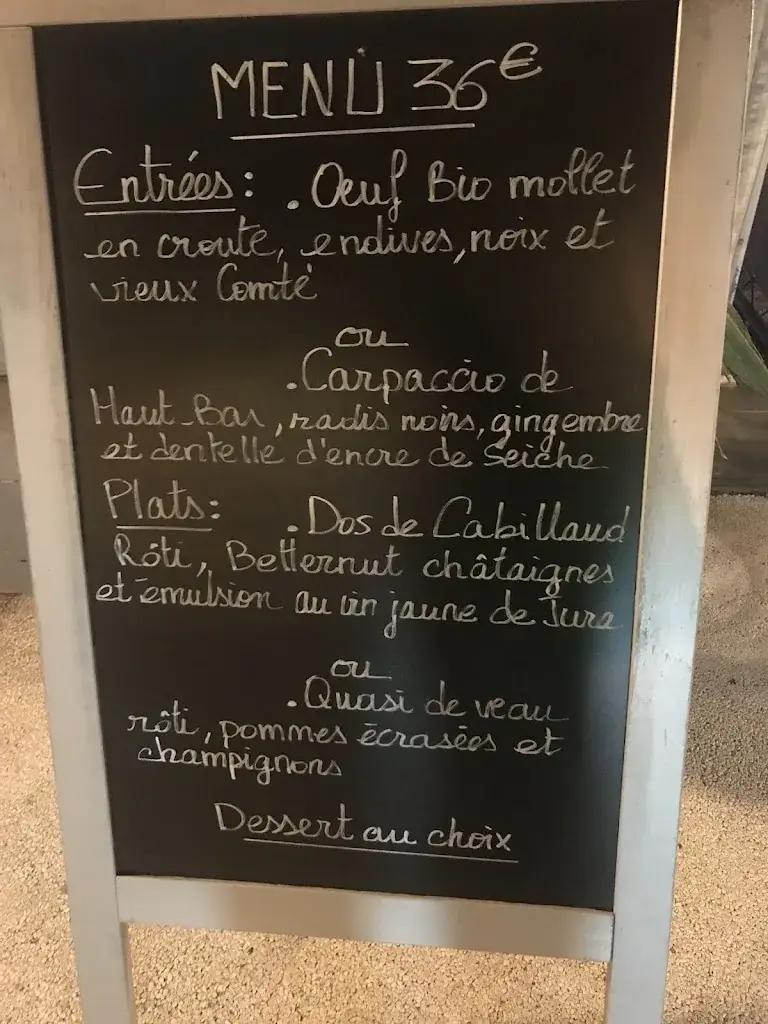 MENU 36€
Entrées: . Oeuf Bio mollet
en croute, endives, noix et
vieux Comté
ou
. Carpaccio de
Haut-Bar, radis noirs, gingembre
et dentelle d'encre de Seiche
Plats: . Dos de Cabillaud
Rôti, Betternut châtaignes
et émulsion au vin jaune de Jura
ou
. Quasi de veau
rôti, pommes écrasées et
champignons
Dessert au choix